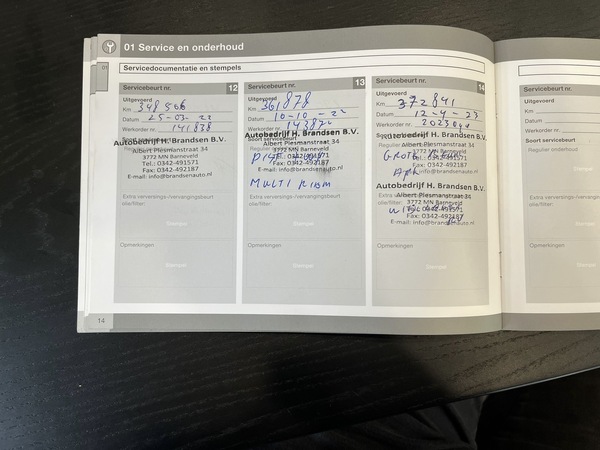 01 Service en onderhoud
01
Servicedocumentatie en stempels
Servicebeurt nr. 12
Uitgevoerd
Km 348566
Datum 25-03-22
Werkorder nr. 141838
Soort servicebeurt
Autobedrijf H. Brandsen B.V.
Albert Plesmanstraat 34
3772 MN Barneveld
Tel.: 0342-491571
Fax: 0342-492187
E-mail: info@brandsenauto.nl
Extra verversings-/vervangingsbeurt
olie/filter:
Stempel
Opmerkingen
Stempel
Servicebeurt nr. 13
Uitgevoerd
Km 361878
Datum 10-10-22
Werkorder nr.
Soort servicebeurt
Autobedrijf H. Brandsen B.V.
Albert Plesmanstraat 34
3772 MN Barneveld
Tel.: 0342-491571
Fax: 0342-492187
E-mail: info@brandsenauto.nl
MULTI RIEM
Extra verversings-/vervangingsbeurt
olie/filter:
Stempel
Opmerkingen
Stempel
Servicebeurt nr. 14
Uitgevoerd
Km 372841
Datum 12-4-23
Werkorder nr.
Autobedrijf H. Brandsen B.V.
Soort servicebeurt
Albert Plesmanstraat 34
3772 MN Barneveld
Fax: 0342-492187
E-mail: info@brandsenauto.nl
Autobedrijf H. Brandsen B.V.
Albert Plesmanstraat 34
3772 MN Barneveld
Fax: 0342-492187
E-mail: info@brandsenauto.nl
Opmerkingen
Stempel
Servicebeurt nr.
Uitgevoerd
Km
Datum
Werkorder nr.
Soort servicebeurt
Regulier onderhoud
Extra verversings-/
olie/filter:
Opmerkingen
14